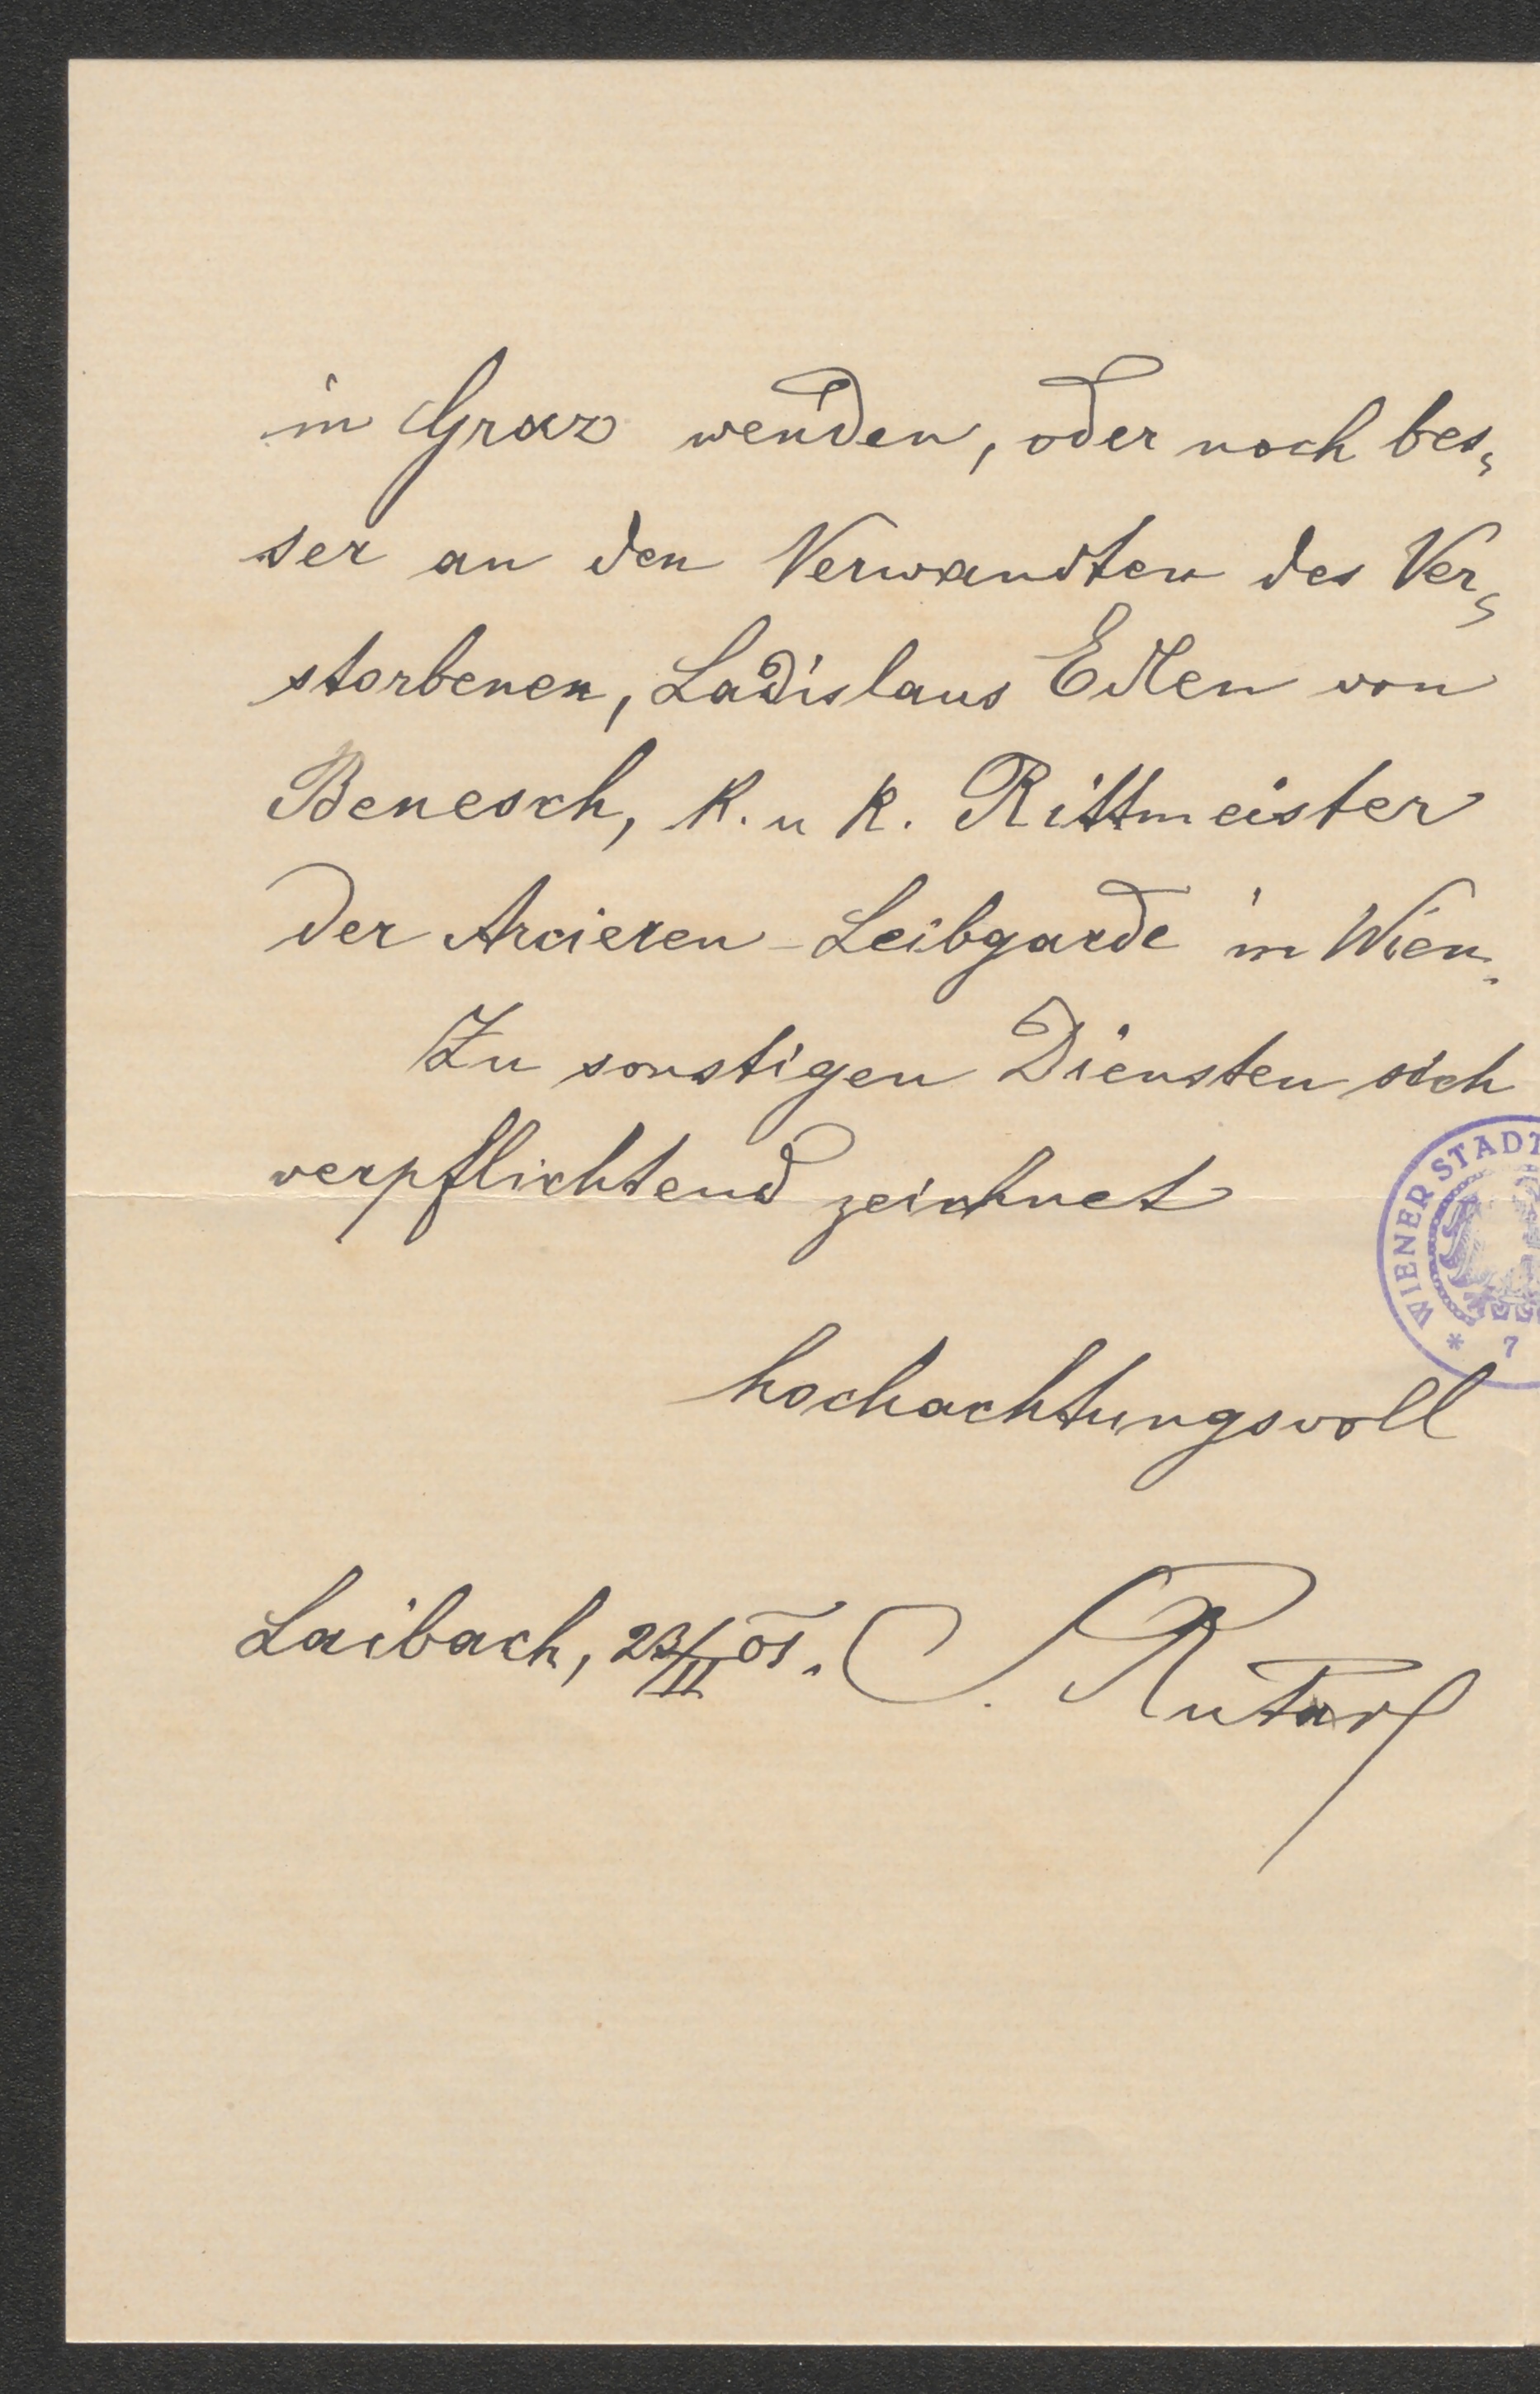 in Graz wenden, oder noch bes=
ser an den Verwandten des Ver=
storbenen, Ladislaus Edlen von
Benesch, k. u k. Rittmeister
der Arcieren-Leibgarde in Wien.
Zu sonstigen Diensten sich
verpflichtend zeichnet
WIENER STADT
* 7
hochachtungsvoll
Laibach, 23/II 01. S. Rutar